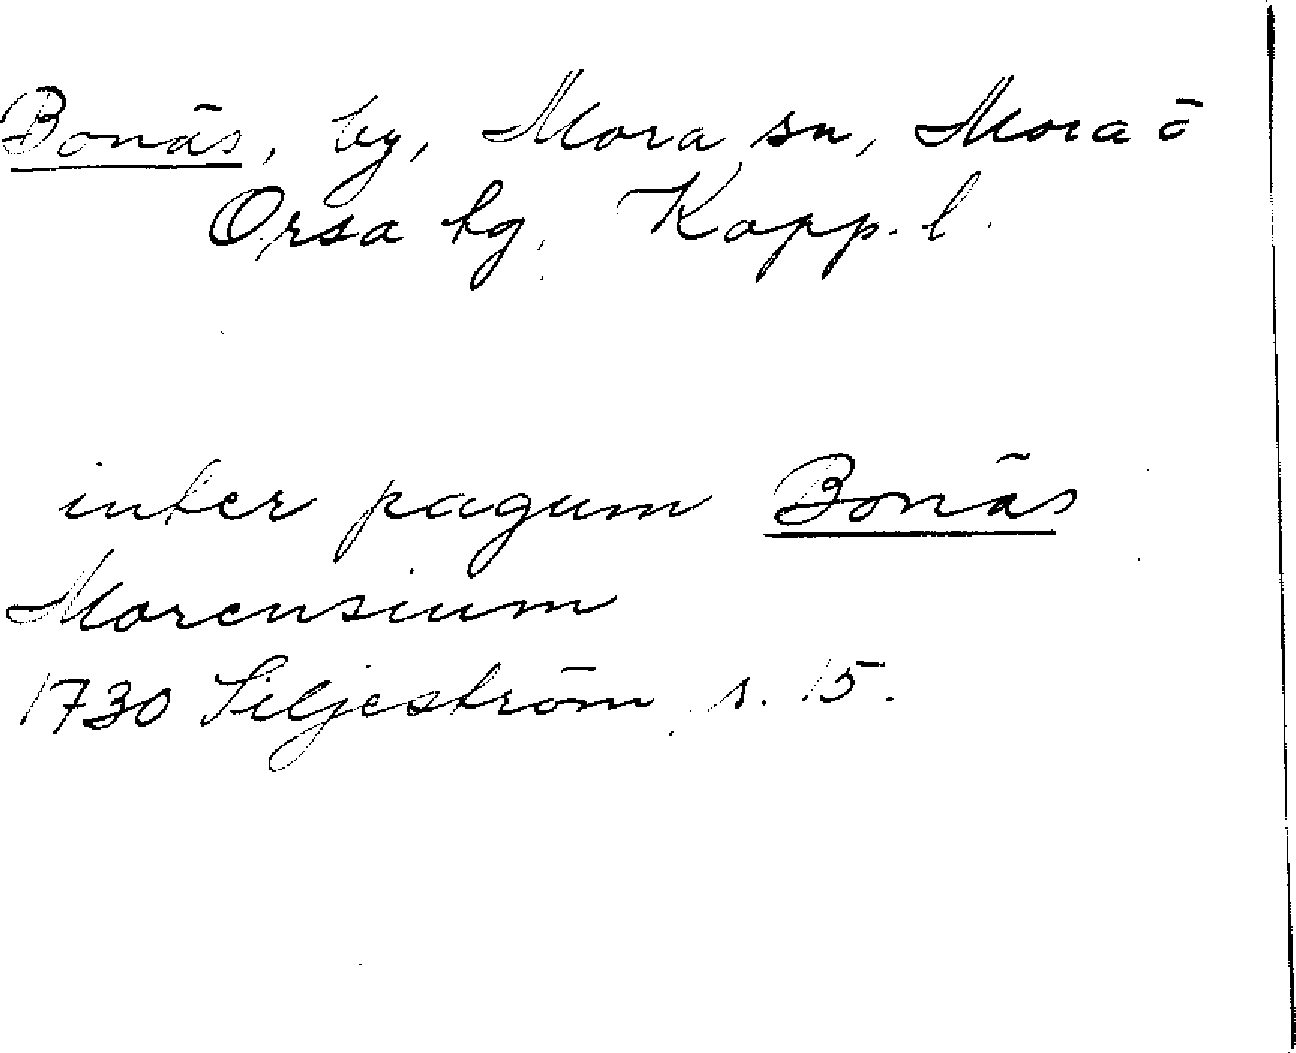 Bonäs, by, Mora sn, Mora ö
Orsa tg, Kopp. l.
inter pagum Bonäs
Morensium
1730 Siljeström, s. 15.